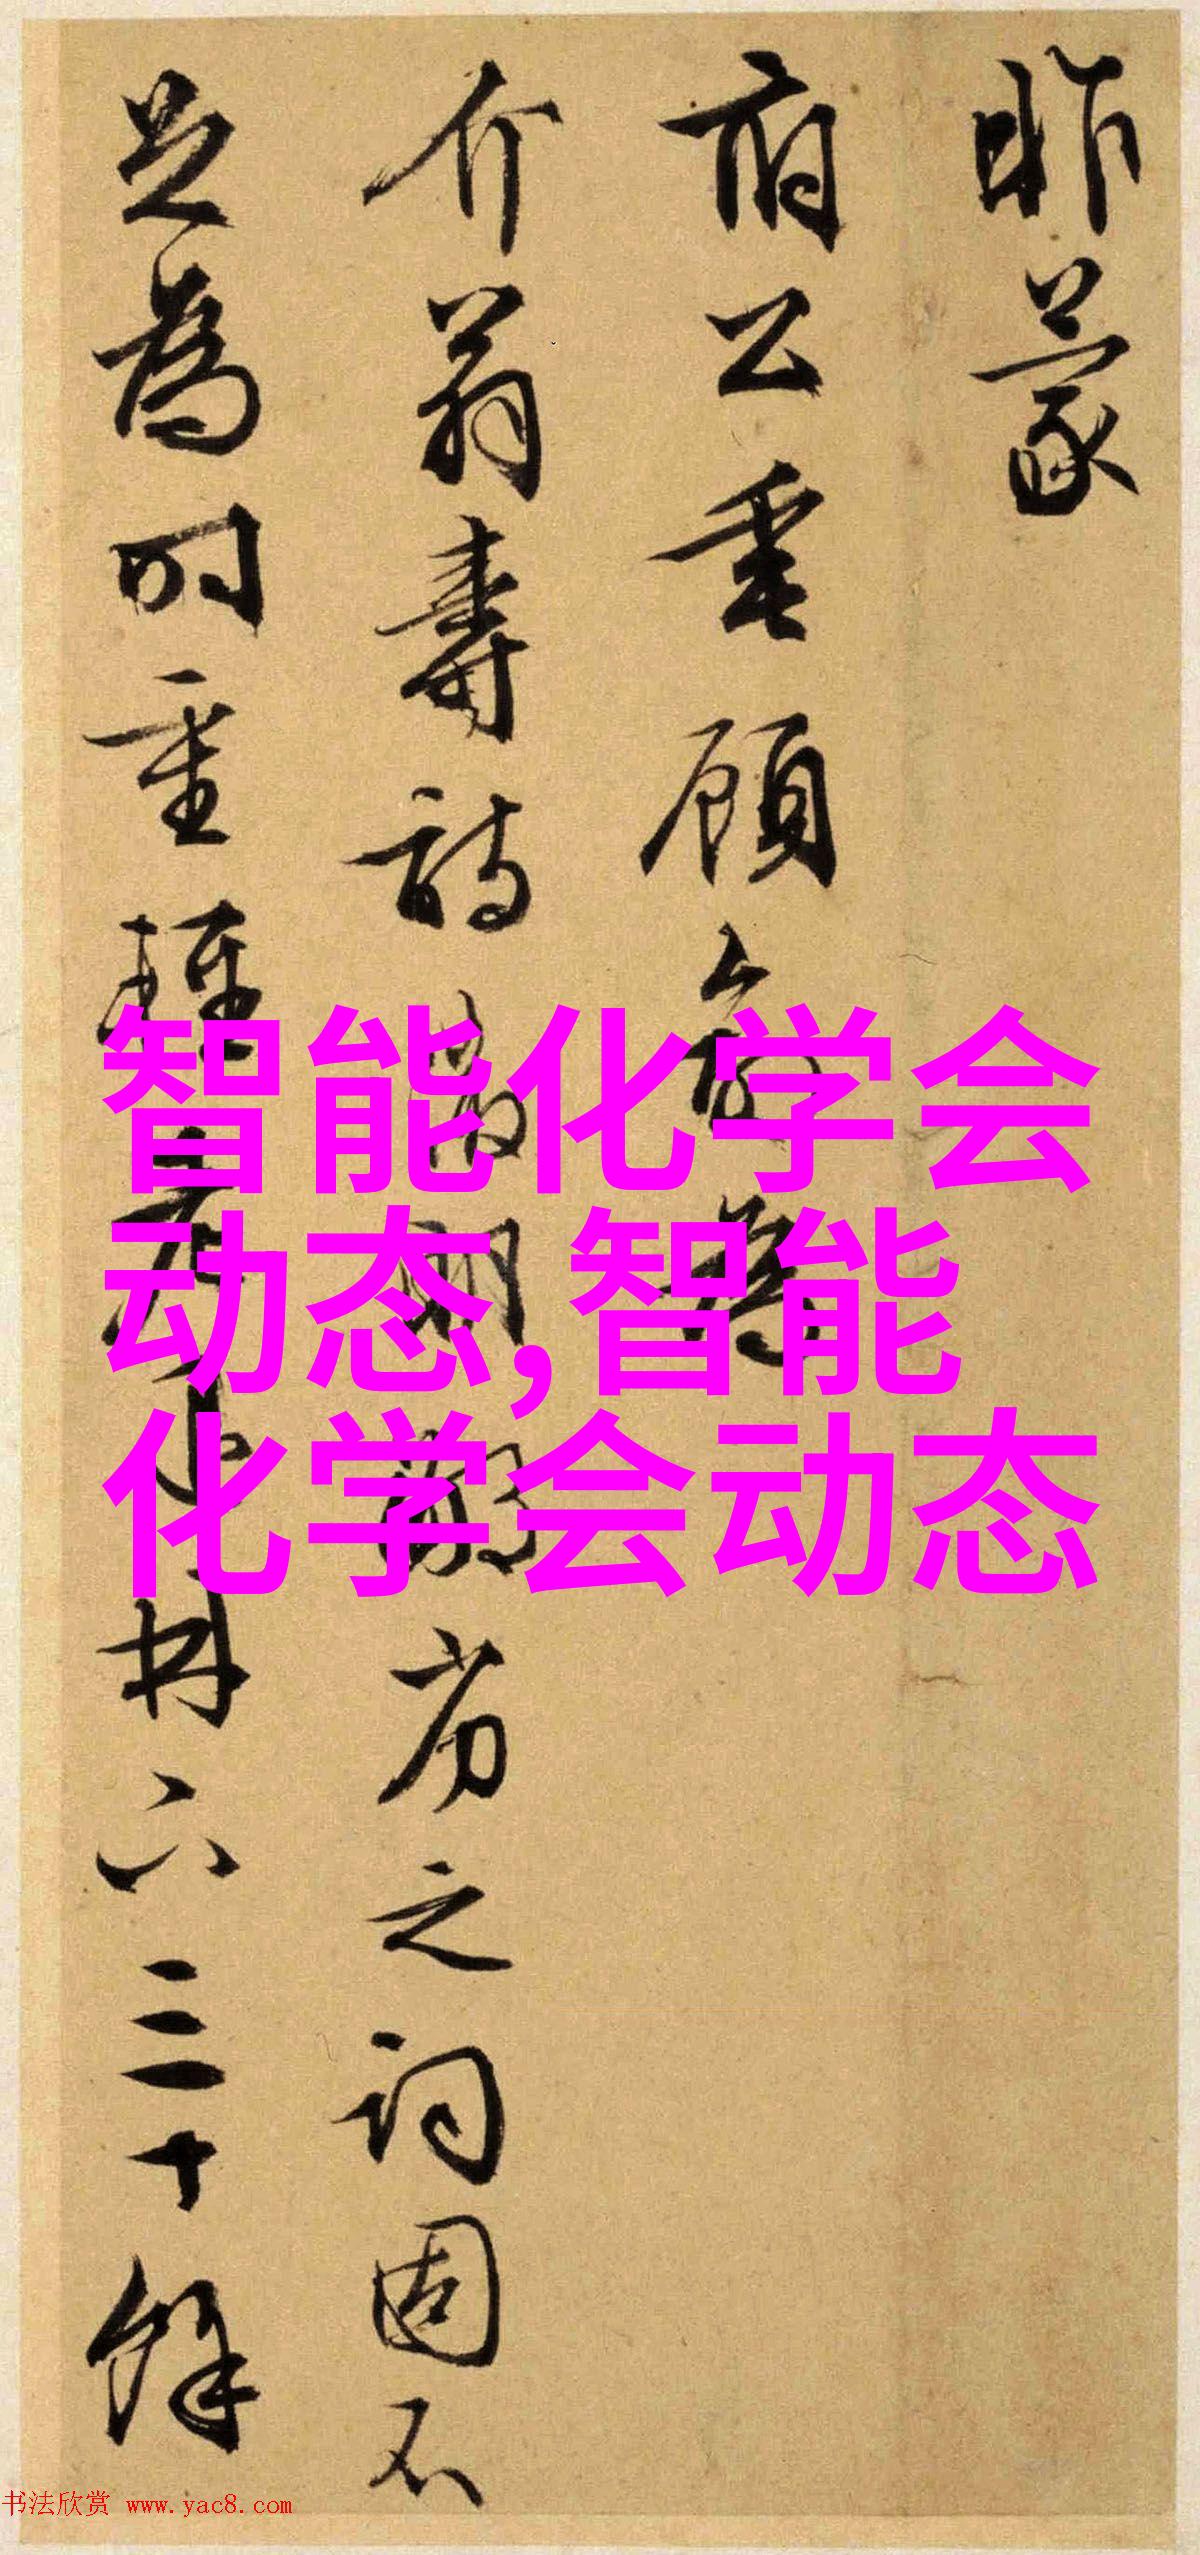 昨蒙
府公垂顧兼為
介翁壽詩
劣之詞固不
足為時重
六三十餘
智能化学会
动态,智能
化学会动态
书法欣赏 www.yac8.com